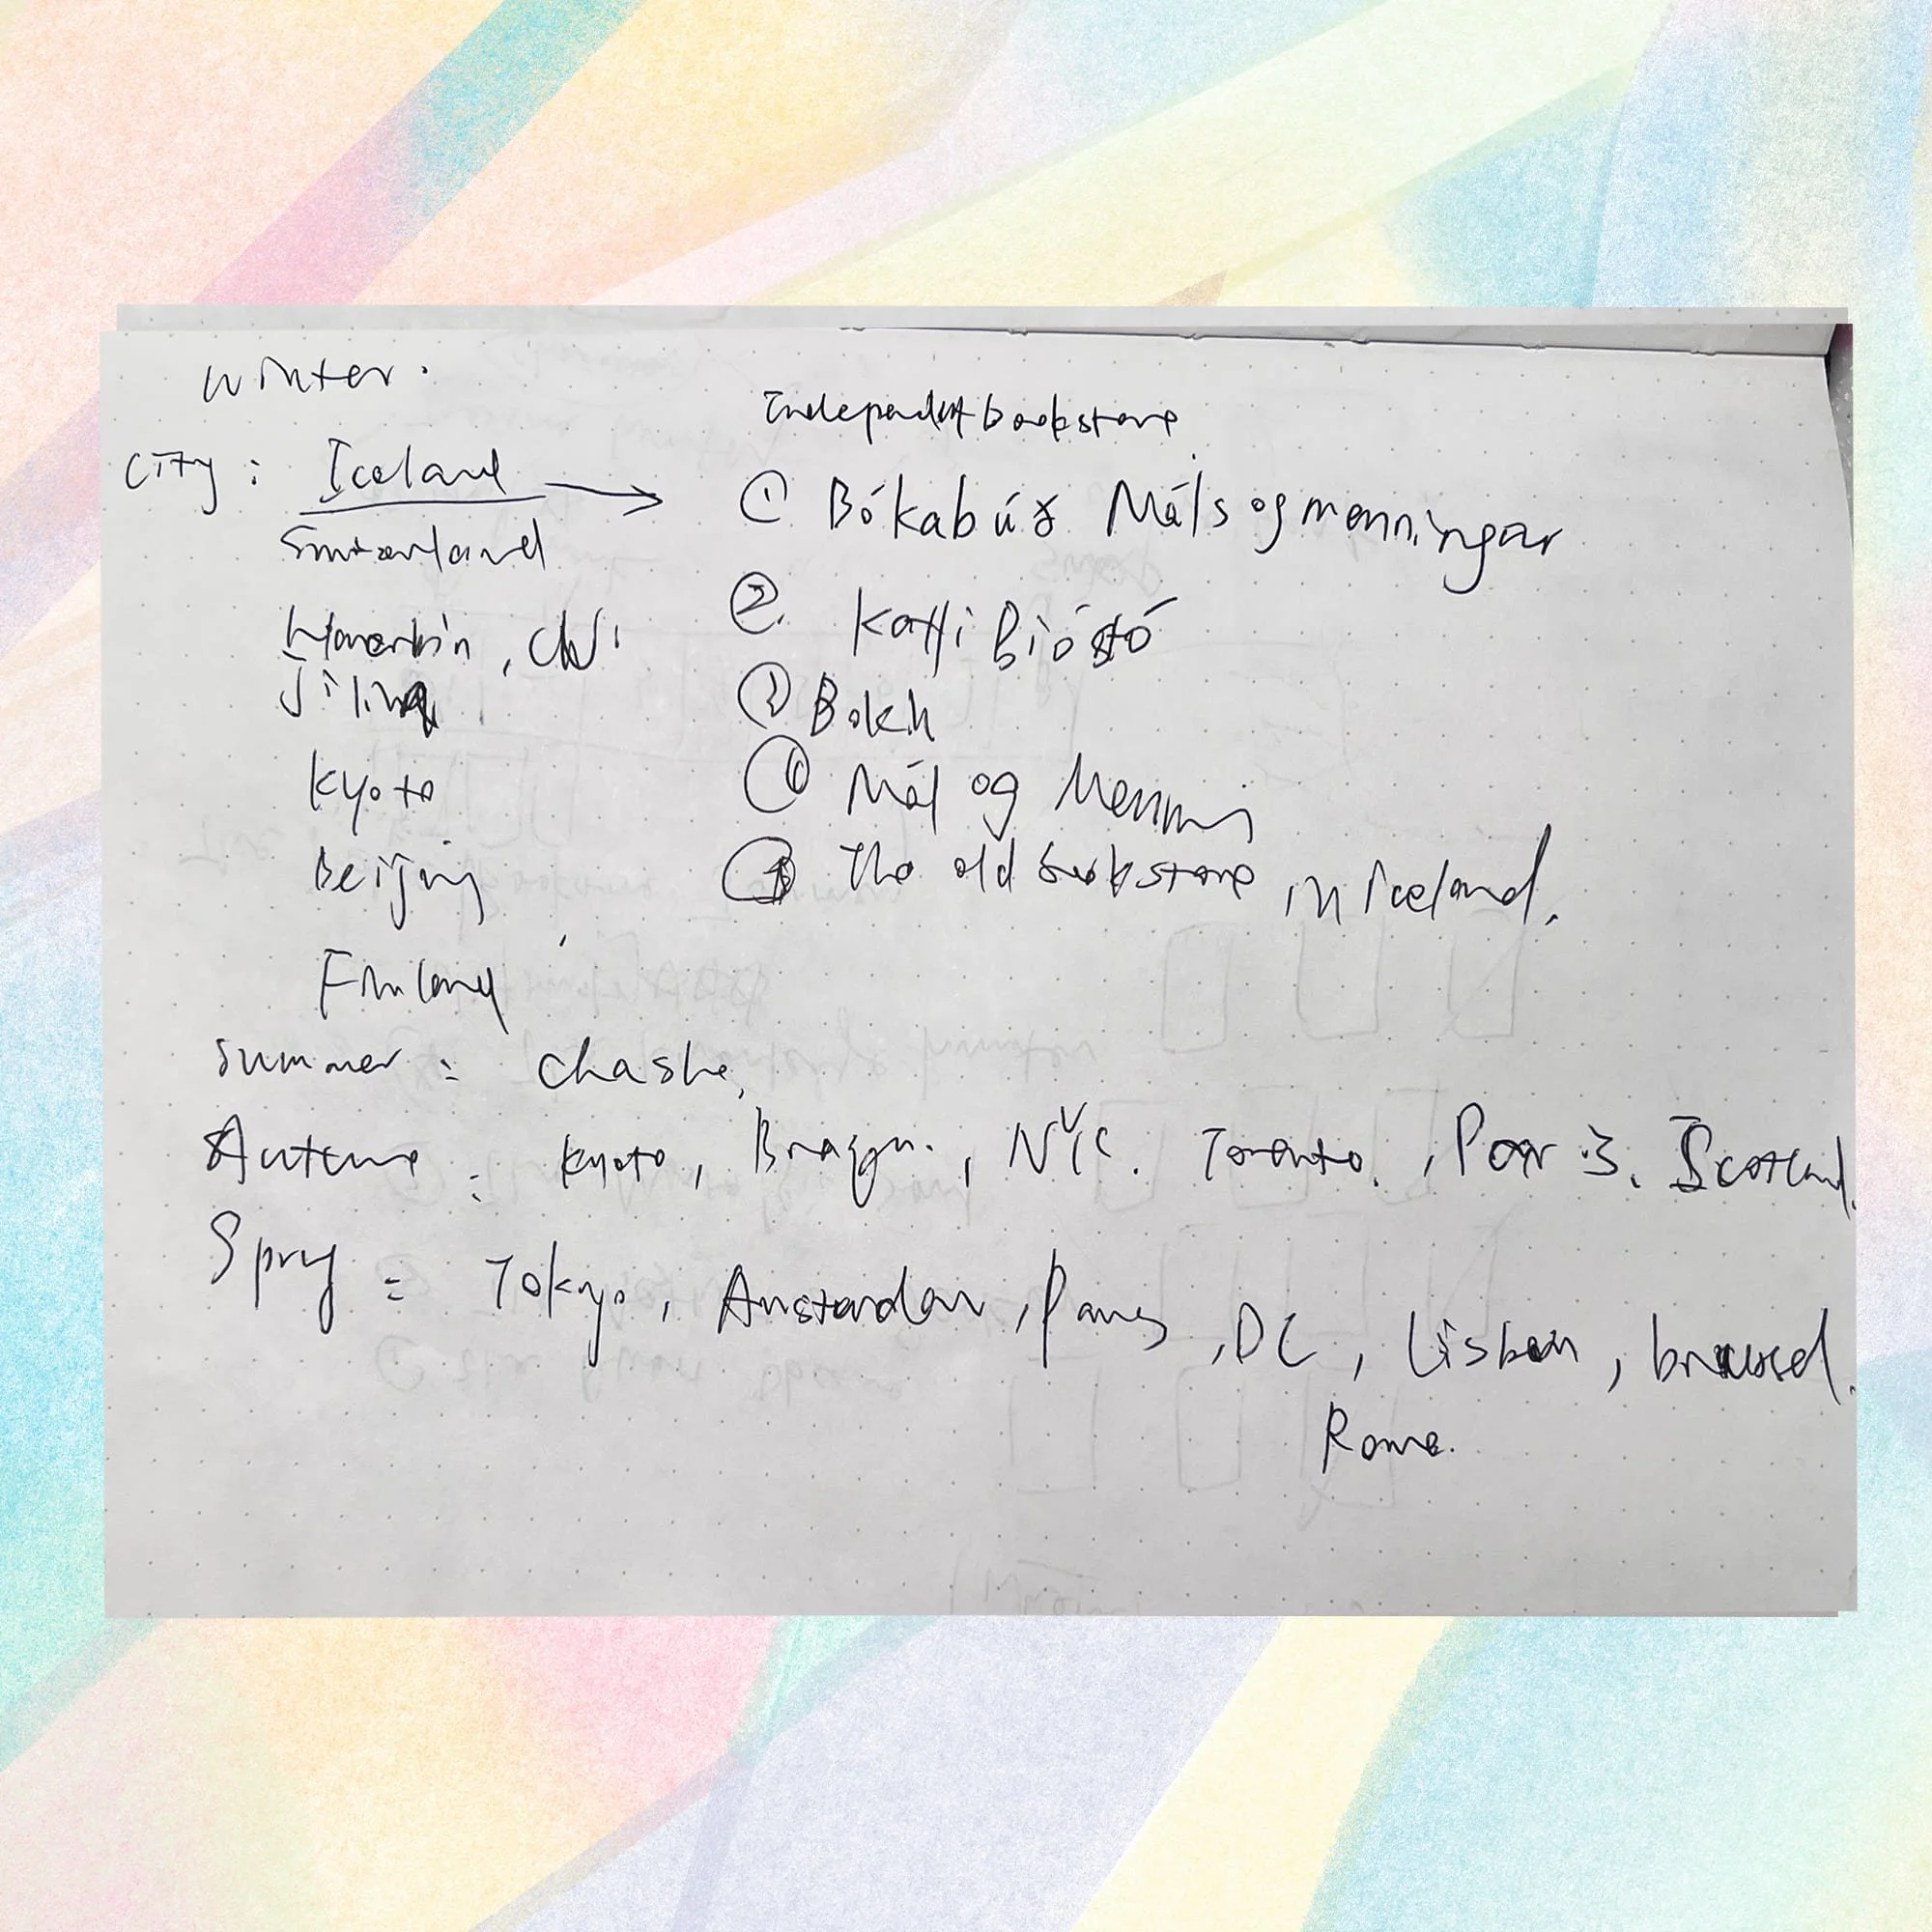 Winter.
City: Iceland →
Switzerland
Harbin,
Kyoto
Beijing
Finland
Independent bookstore
① Bókabúð Máls og menningar
② Kaffi Bíóstó
③ Bokh
④ Mál og Menning
⑤ The old bookstore in Iceland.
Summer:
Autume: Kyoto, NYC. Toronto., Paris. Scotland.
Spring: Tokyo, Amsterdam, Paris, DC, Lisbon,
Rome.